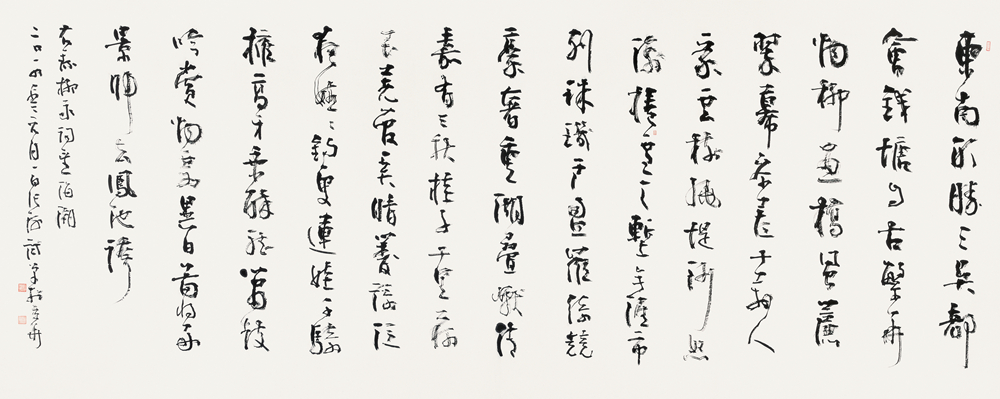 東南形勝三吳都
會錢塘自古繁華
烟柳畫橋風簾
翠幕參差十萬人
家雲樹繞堤沙怒
濤捲雪天塹無涯市
列珠璣戶盈羅綺競
豪奢重湖疊巘清
嘉有三秋桂子十里荷
花羌管弄晴菱歌泛
夜嬉〻釣叟蓮娃千騎
擁高牙乘醉聽簫鼓
吟賞烟霞異日圖將好
景歸去鳳池誇
柳永詞望海潮
二〇一九年六月一日